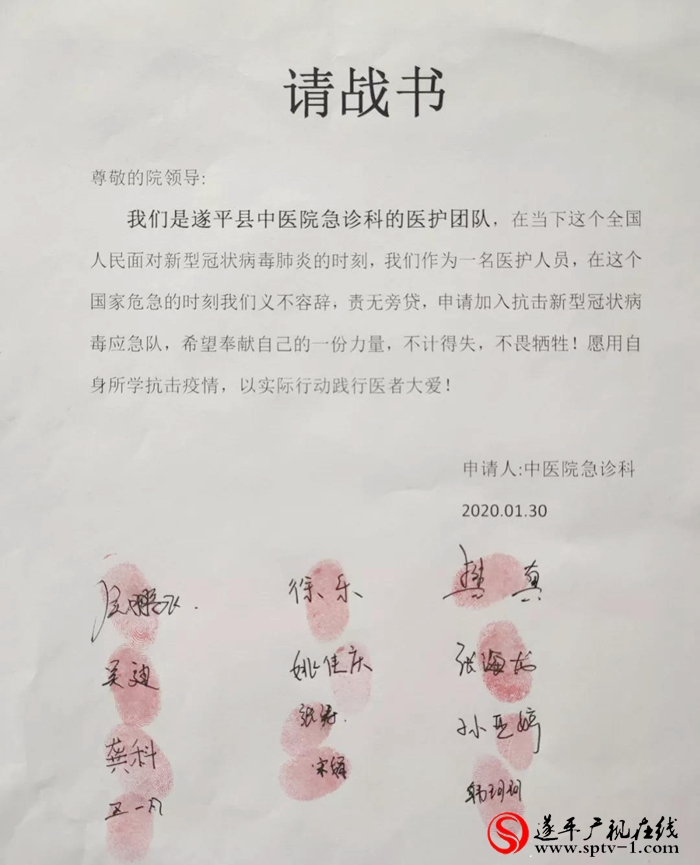 请战书
尊敬的院领导:
我们是遂平县中医院急诊科的医护团队，在当下这个全国
人民面对新型冠状病毒肺炎的时刻，我们作为一名医护人员，在这个
国家危急的时刻我们义不容辞，责无旁贷，申请加入抗击新型冠状病
毒应急队，希望奉献自己的一份力量，不计得失，不畏牺牲！愿用自
身所学抗击疫情，以实际行动践行医者大爱！
申请人:中医院急诊科
2020.01.30
徐乐
樊真
吴迪
姚佳庆
张海龙
孙亚婷
龚科
韩珂珂
王一凡
遂平广视在线
www.sptv-1.com